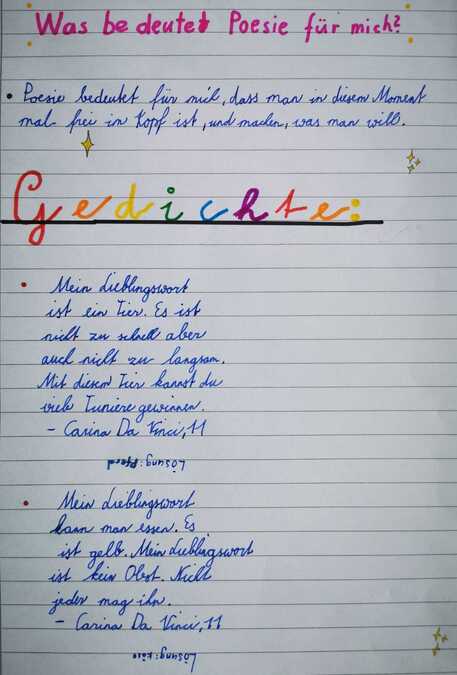 Was bedeutet Poesie für mich?
• Poesie bedeutet für mich, dass man in diesem Moment
mal frei im Kopf ist, und machen, was man will.
Gedichte:
• Mein Lieblingswort
ist ein Tier. Es ist
nicht zu schnell aber
auch nicht zu langsam.
Mit diesem Tier kannst du
viele Tuniere gewinnen.
- Carina Da Vinci, 11
Lösung: Pferd
• Mein Lieblingswort
kann man essen. Es
ist gelb. Mein Lieblingswort
ist kein Obst. Nicht
jeder mag ihn.
- Carina Da Vinci, 11
Lösung: Käse